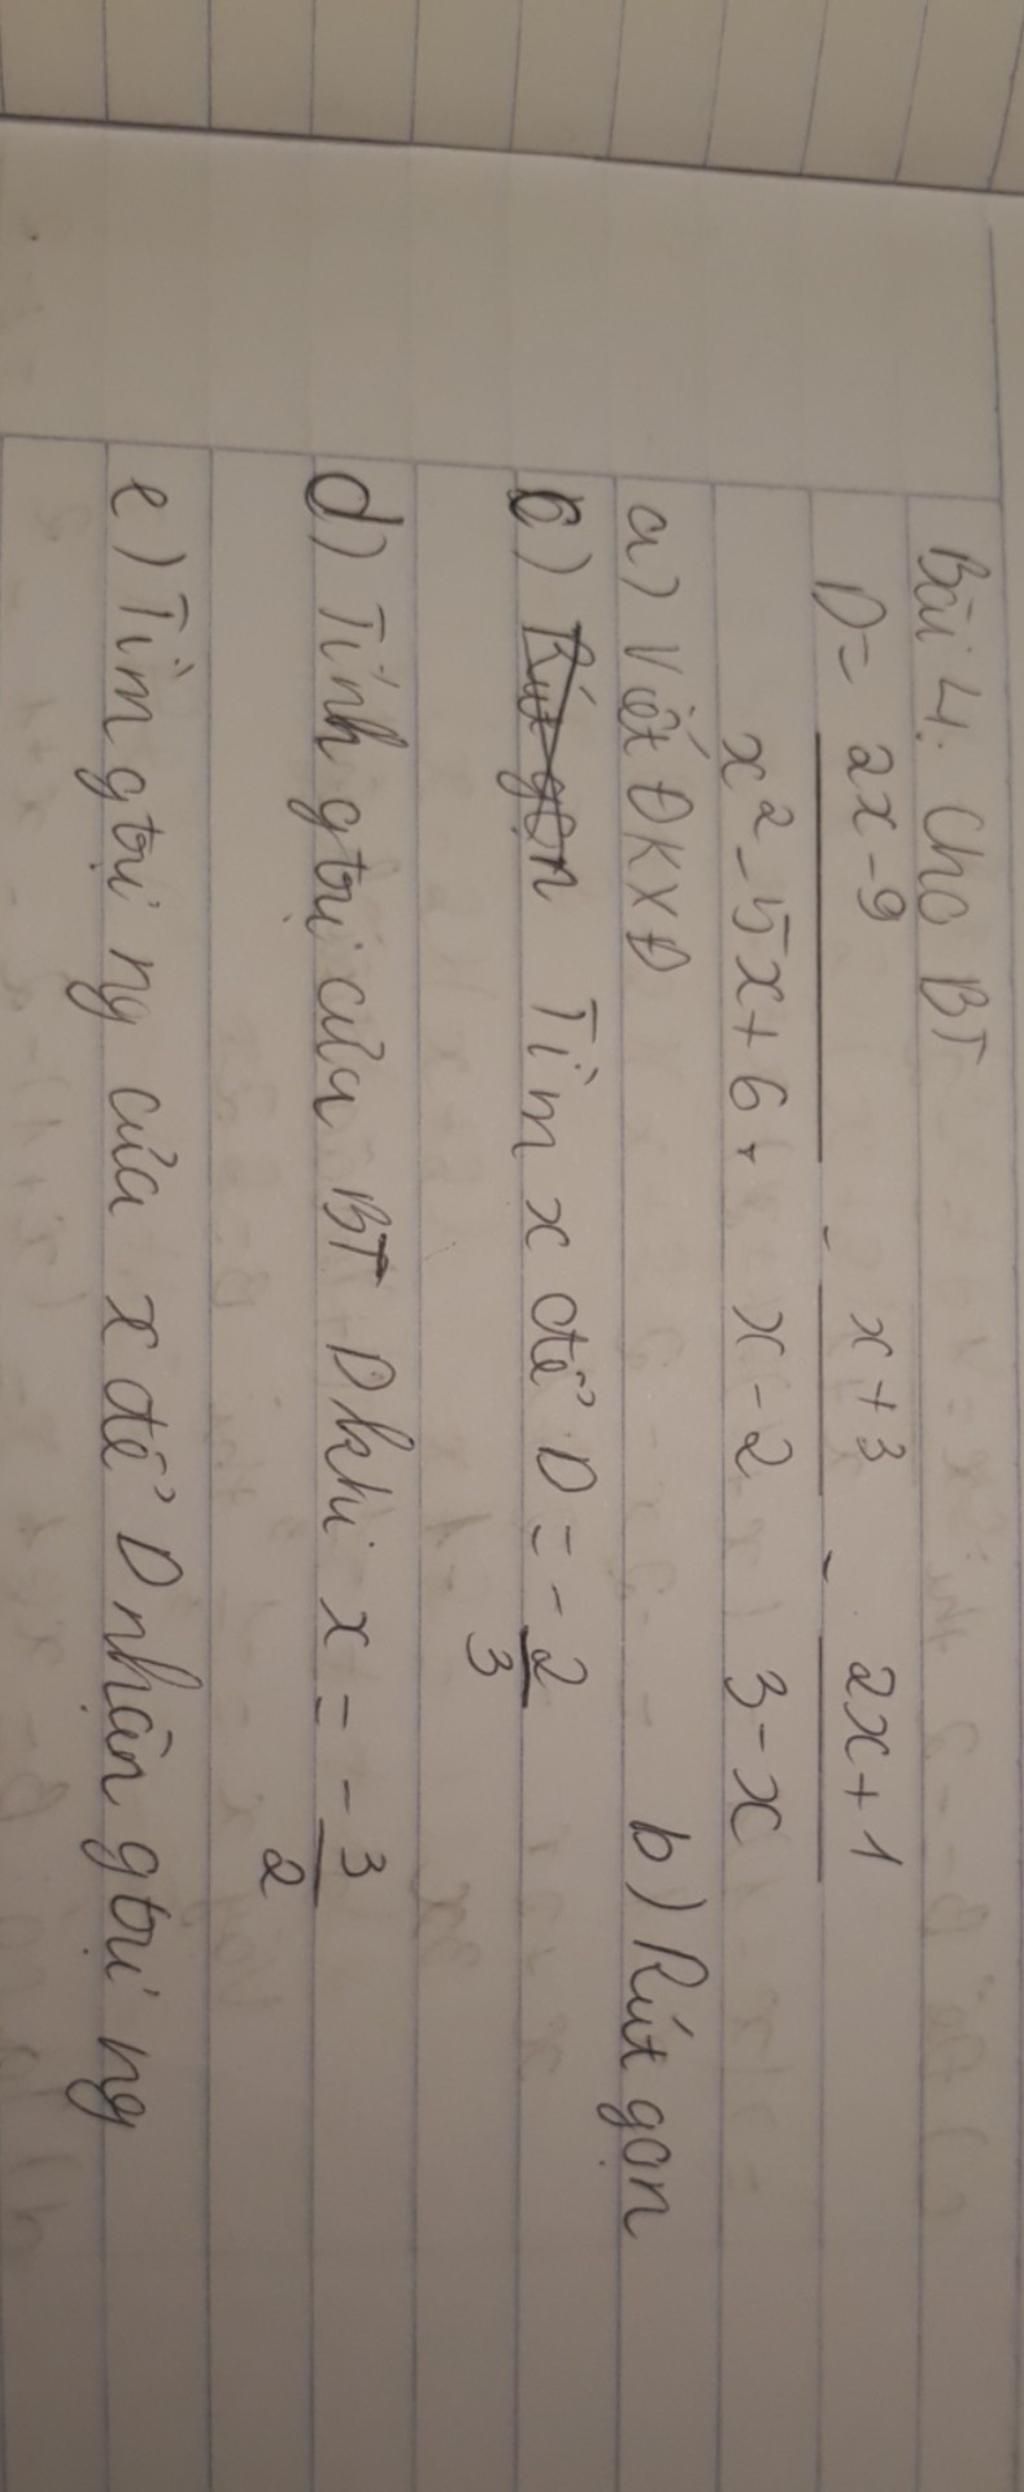 Bài 4. Cho BT
D = \frac{2x-9}{x^2-5x+6} - \frac{x+3}{x-2} - \frac{2x+1}{3-x}
a) Viết ĐKXĐ b) Rút gọn
c) ~~Rút gọn~~ Tìm x để D = -\frac{2}{3}
d) Tính gtrị của BT D khi x = -\frac{3}{2}
e) Tìm gtrị ng của x để D nhận gtrị ng